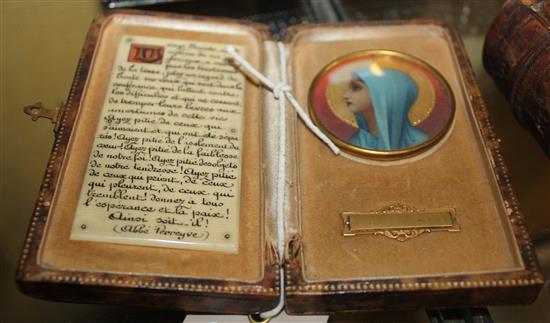 Vierge Sainte, au
milieu de vos jours
glorieux, n'oubliez
pas les tristesses
de la terre; jetez un regard de
bonté sur ceux qui sont dans la
souffrance, qui luttent contre
les difficultés et qui ne cessent
de tremper leurs lèvres aux
amertumes de cette vie!
Ayez pitié de ceux qui
s'aimaient et qui ont été sépa-
rés! Ayez pitié de l'isolement du
cœur! Ayez pitié de la faiblesse
de notre foi! Ayez pitié des objets
de notre tendresse! Ayez pitié
de ceux qui prient, de ceux
qui pleurent, de ceux qui
tremblent! donnez à tous
l'espérance et la paix!
Ainsi soit-il!
(Abbé Perreyve)